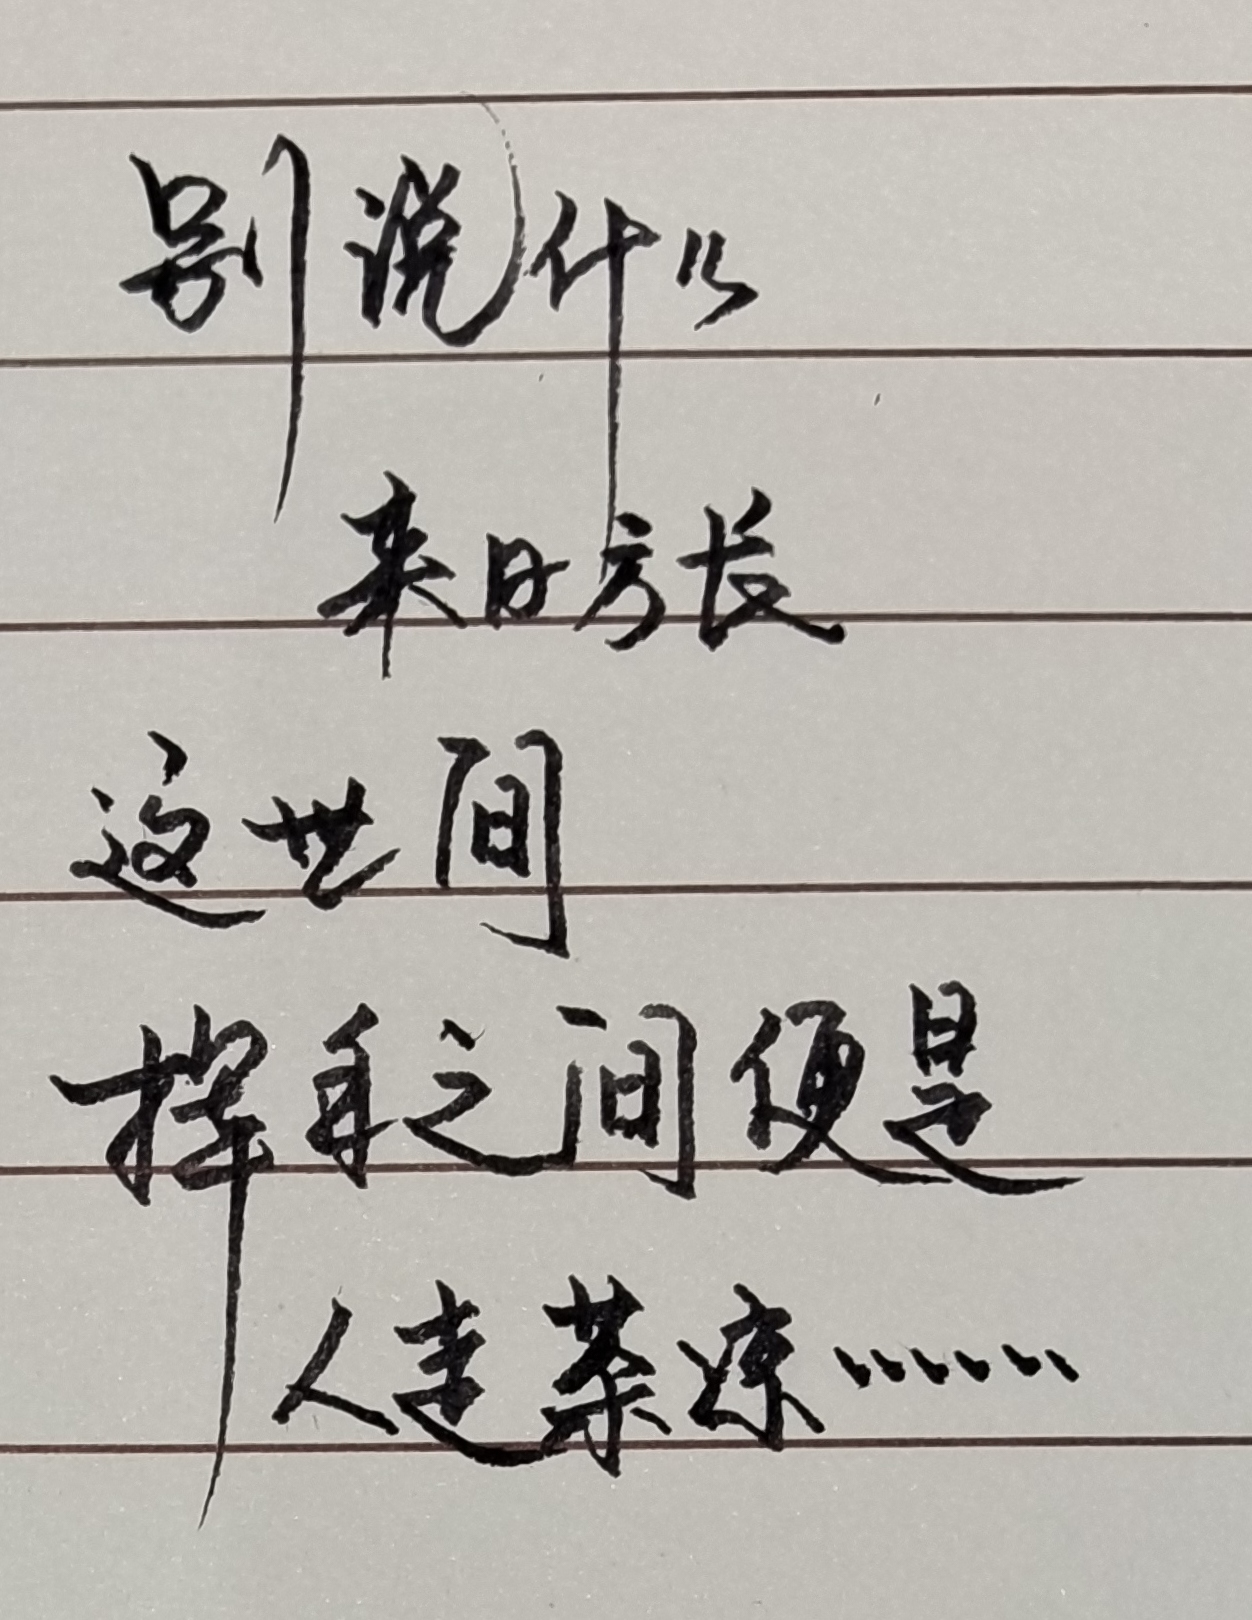 别说什么
来日方长
这世间
挥手之间便是
人走茶凉……